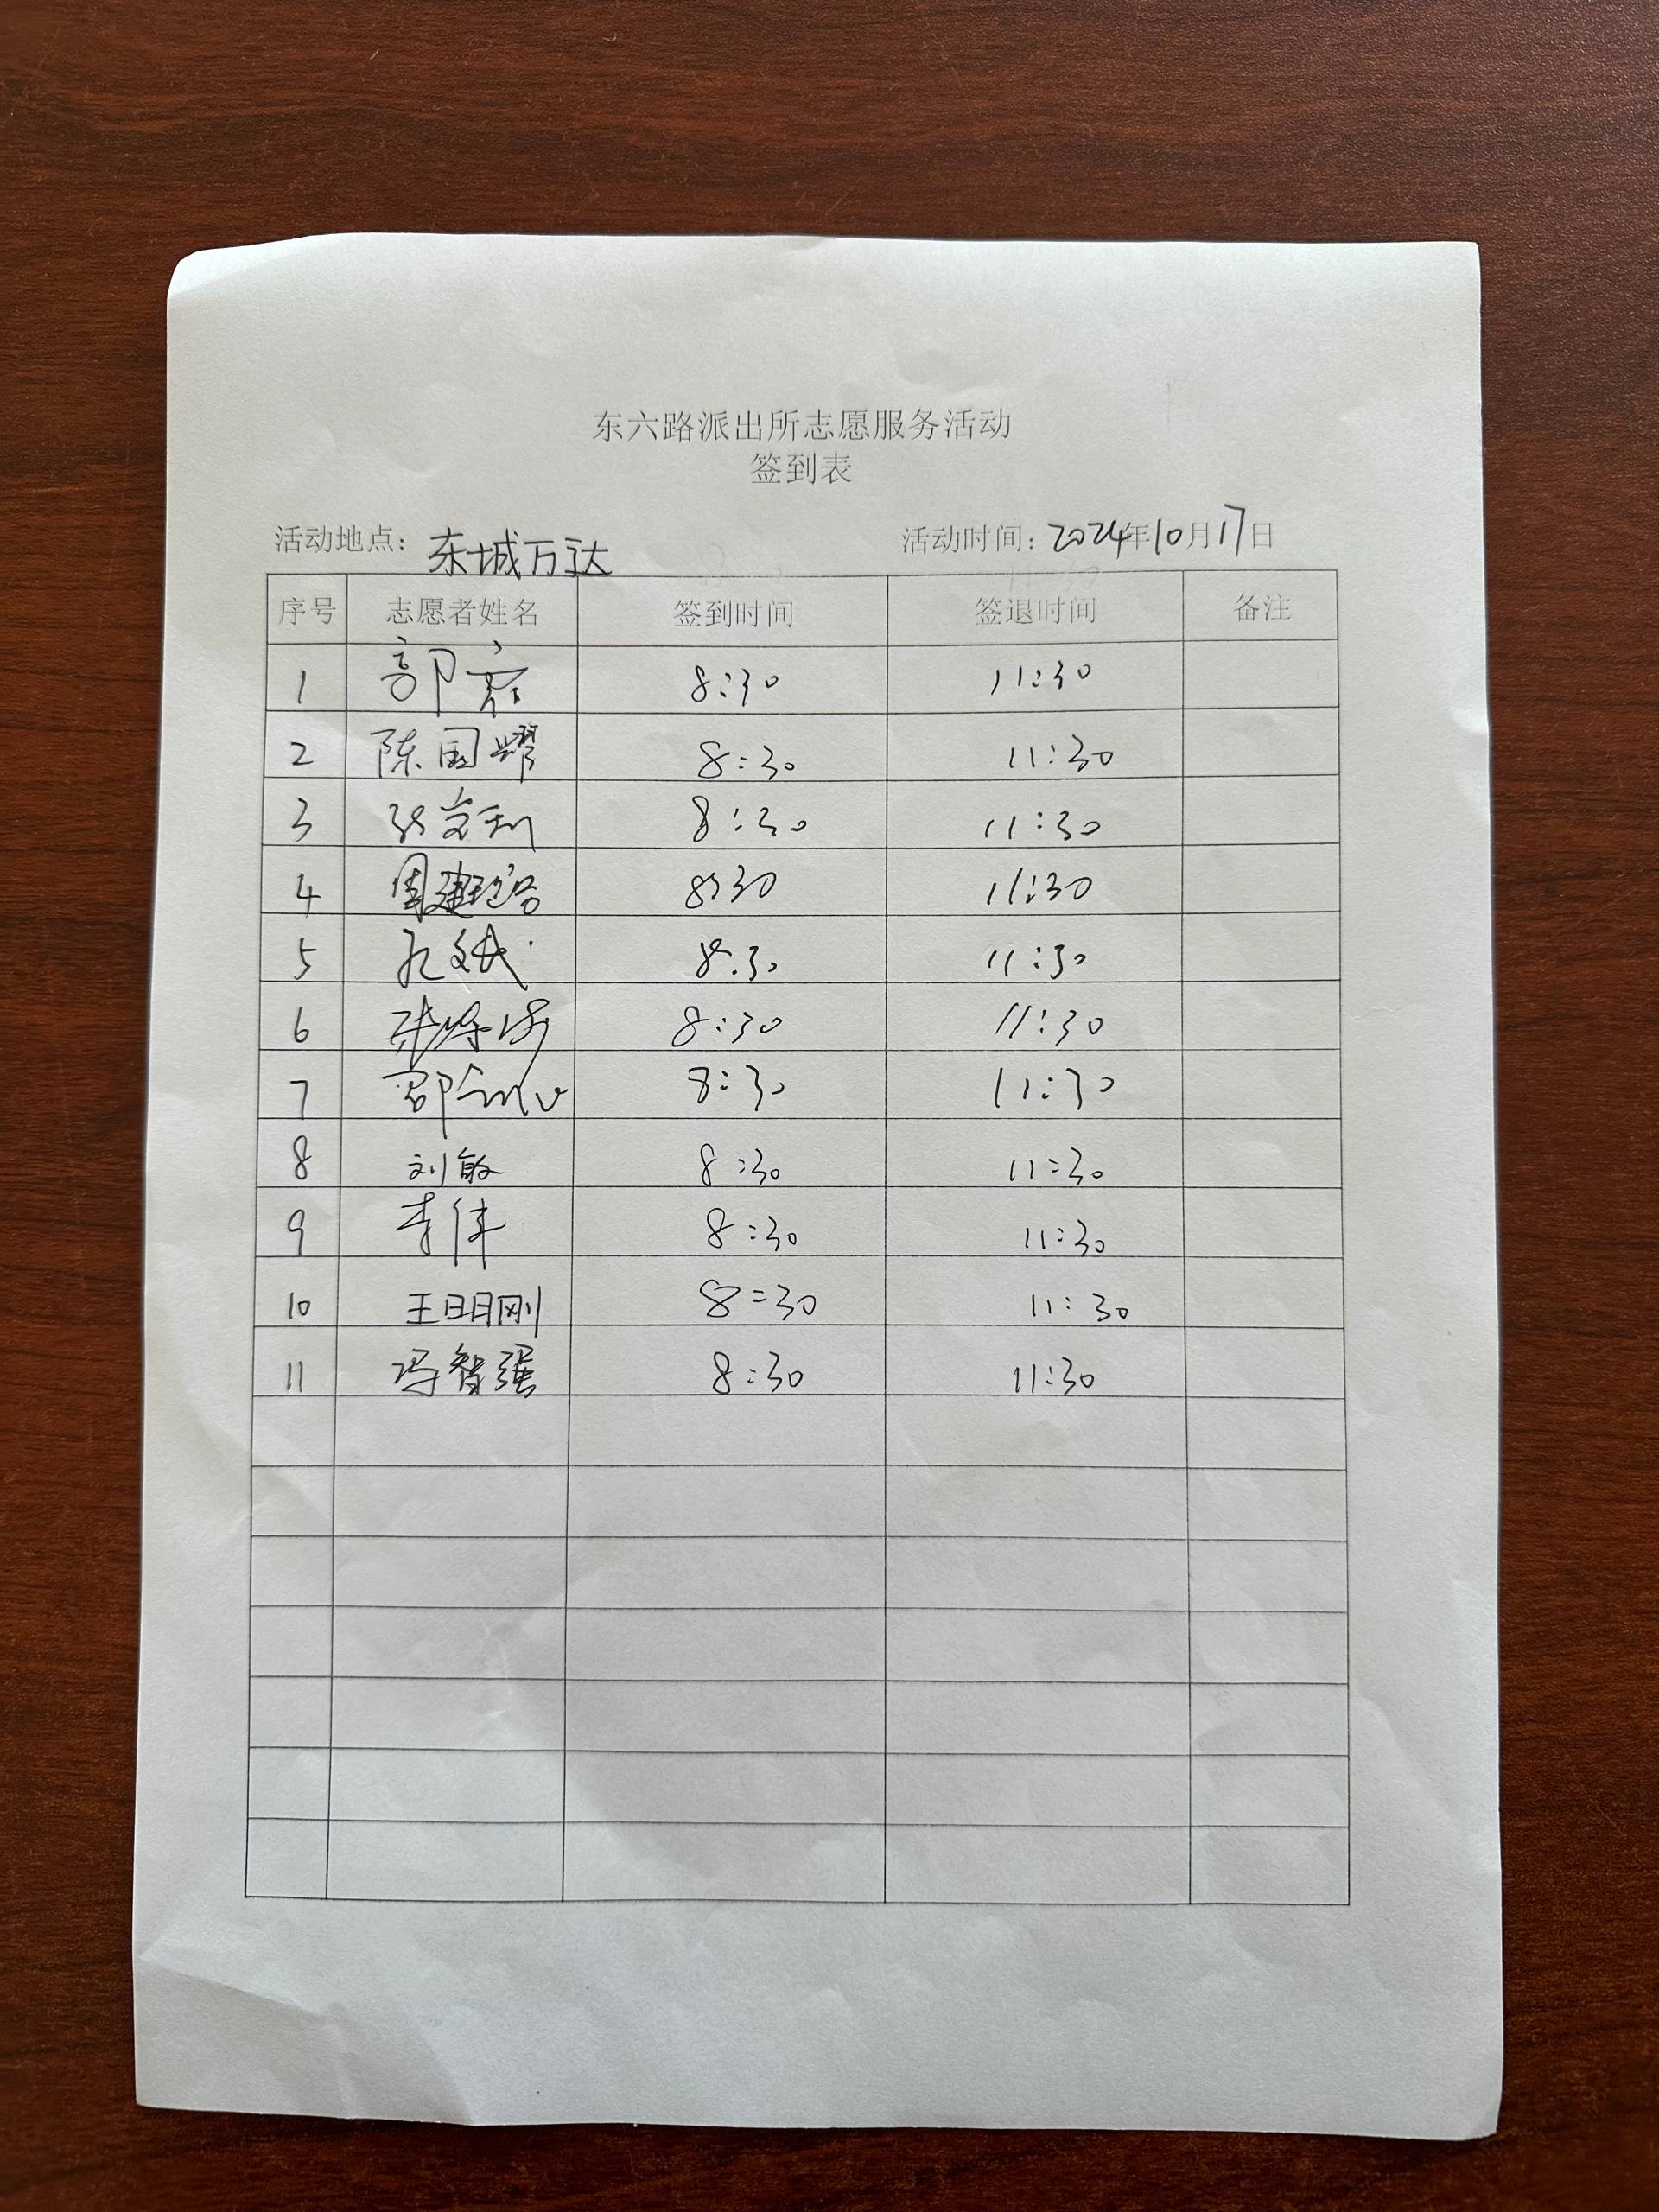 东六路派出所志愿服务活动
签到表
活动地点：东城万达 活动时间：2024年10月17日
序号 志愿者姓名 签到时间 签退时间 备注
1 郭 8:30 11:30
2 陈国耀 8:30 11:30
3 8:30 11:30
4 周建 8:30 11:30
5 孔斌 8.30 11:30
6 8:30 11:30
7 8:30 11:30
8 刘敏 8:30 11:30
9 李伟 8:30 11:30
10 王明刚 8:30 11:30
11 冯智强 8:30 11:30